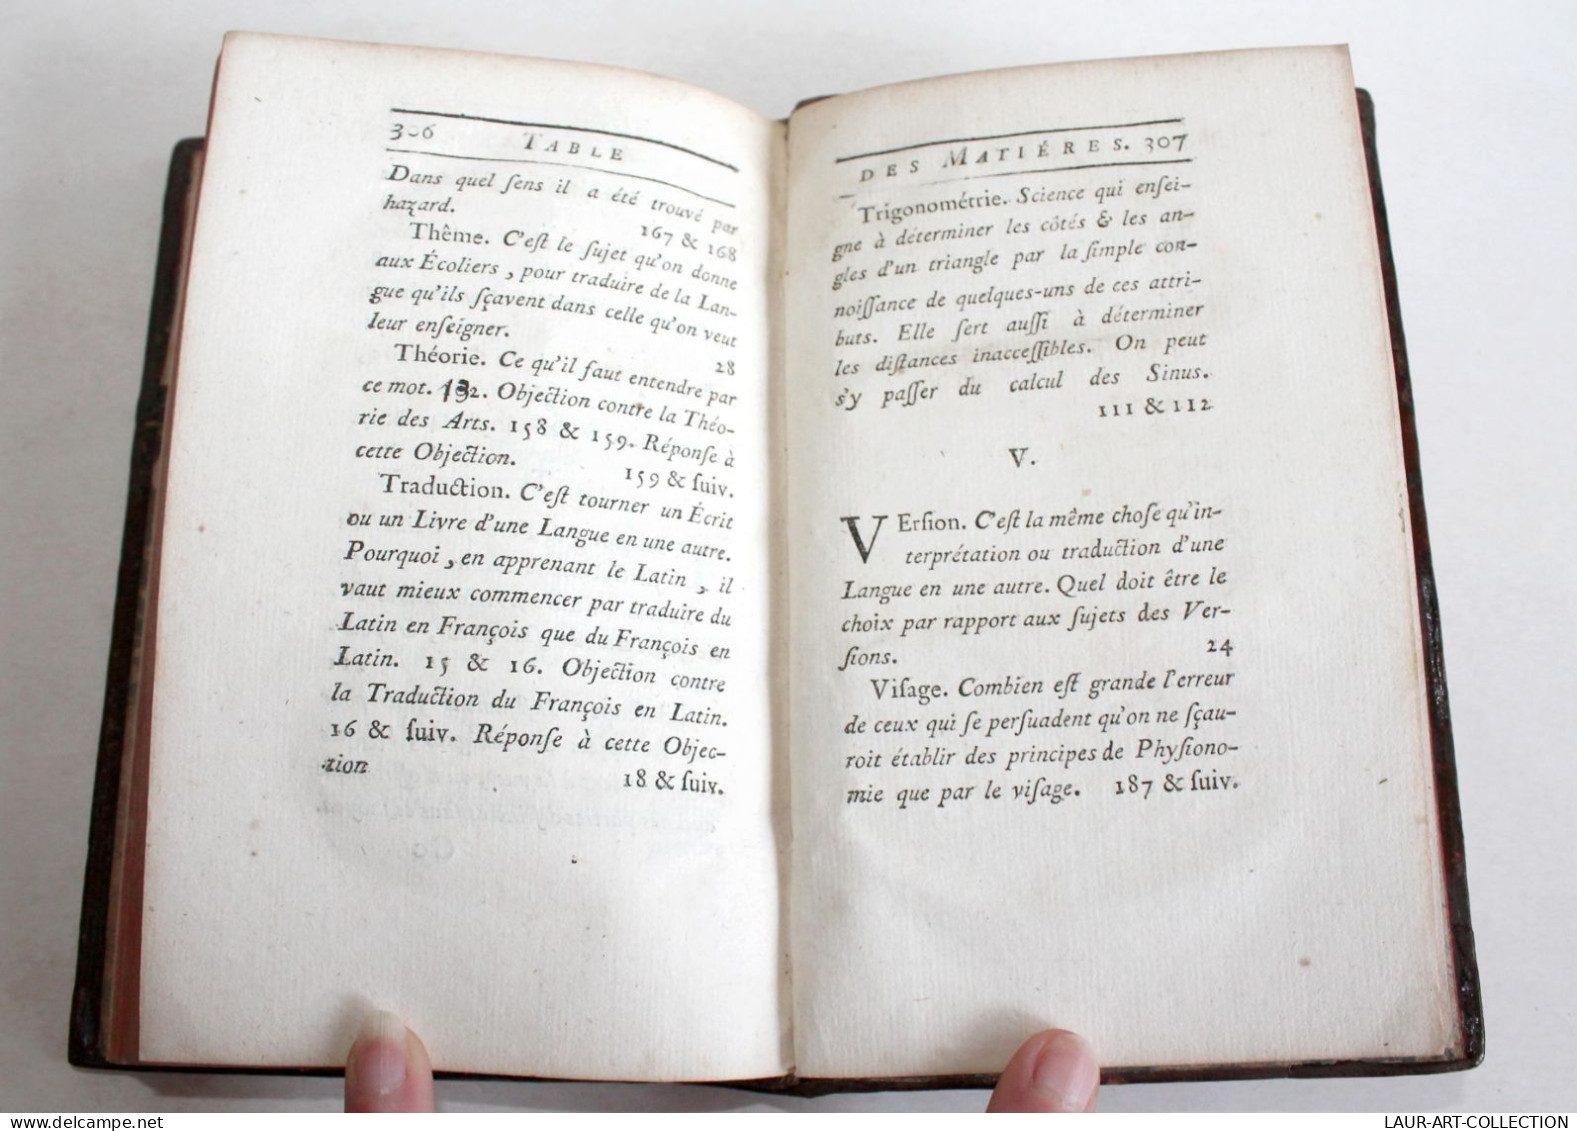 306 TABLE
Dans quel ſens il a été trouvé par
hazard. 167 & 168
Thême. C'eſt le ſujet qu'on donne
aux Écoliers, pour traduire de la Lan-
gue qu'ils ſçavent dans celle qu'on veut
leur enſeigner. 28
Théorie. Ce qu'il faut entendre par
ce mot. 132. Objection contre la Théo-
rie des Arts. 158 & 159. Réponſe à
cette Objection. 159 & ſuiv.
Traduction. C'eſt tourner un Écrit
ou un Livre d'une Langue en une autre.
Pourquoi, en apprenant le Latin, il
vaut mieux commencer par traduire du
Latin en François que du François en
Latin. 15 & 16. Objection contre
la Traduction du François en Latin.
16 & ſuiv. Réponſe à cette Objec-
tion 18 & ſuiv.
DES MATIÉRES. 307
Trigonométrie. Science qui enſei-
gne à déterminer les côtés & les an-
gles d'un triangle par la ſimple con-
noiſſance de quelques-uns de ces attri-
buts. Elle ſert auſſi à déterminer
les diſtances inacceſſibles. On peut
s'y paſſer du calcul des Sinus.
111 & 112
V.
VErſion. C'eſt la même choſe qu'in-
terprétation ou traduction d'une
Langue en une autre. Quel doit être le
choix par rapport aux ſujets des Ver-
ſions. 24
Viſage. Combien eſt grande l'erreur
de ceux qui ſe perſuadent qu'on ne ſçau-
roit établir des principes de Phyſiono-
mie que par le viſage. 187 & ſuiv.
delcampe.net
LAUR-ART-COLLECTION